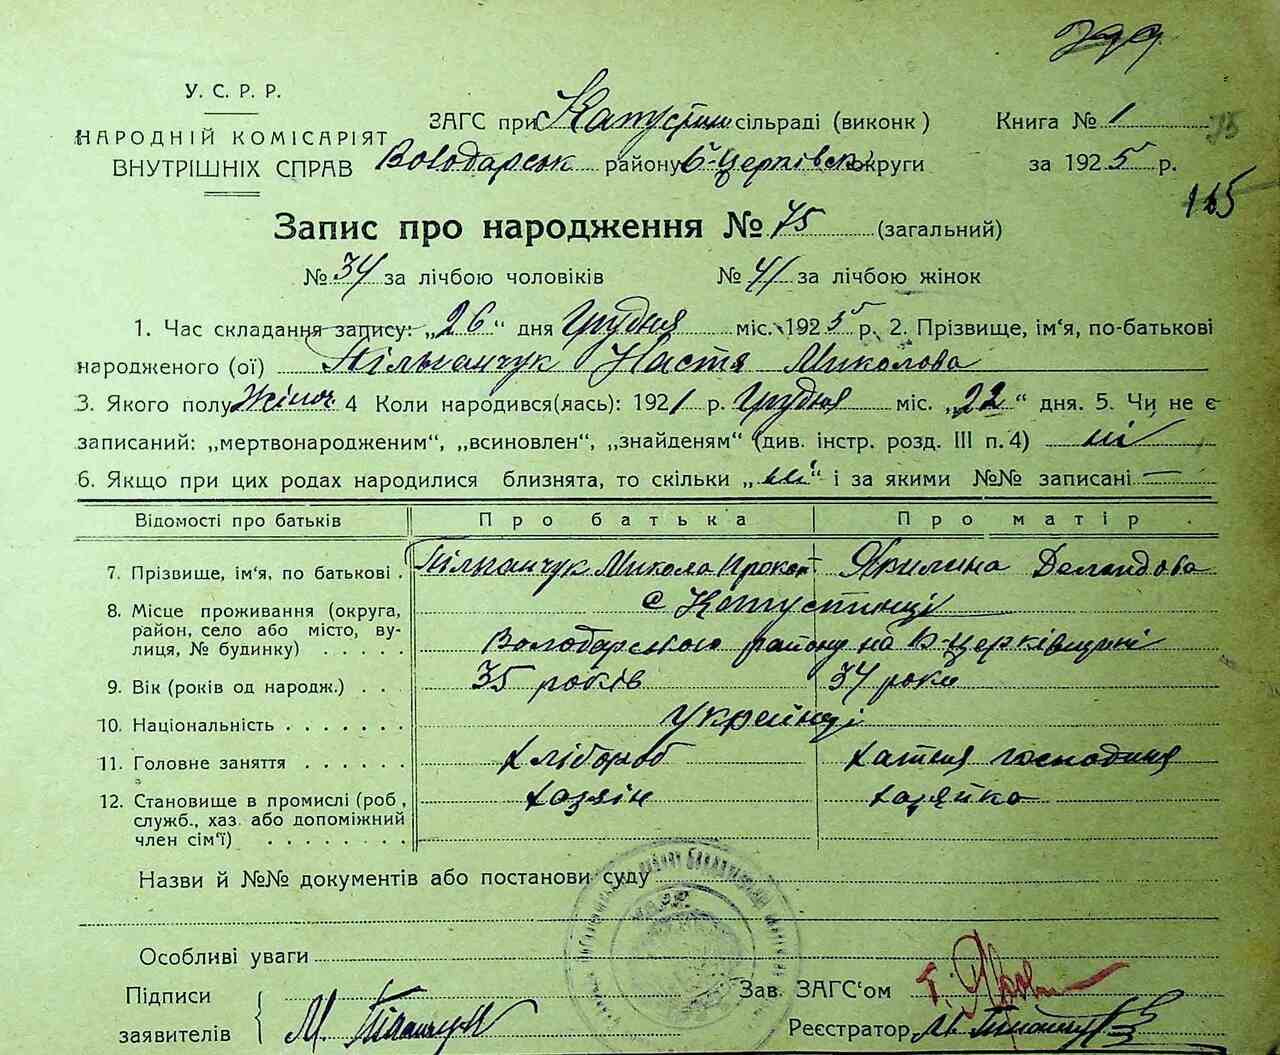 У. С. Р. Р.
НАРОДНІЙ КОМІСАРІЯТ
ВНУТРІШНІХ СПРАВ
ЗАГС при Капустин сільраді (виконк) Книга № 1
Володарськ району Б-Церківськ округи за 1925 р.
75
Запис про народження № 75 (загальний)
№ 34 за лічбою чоловіків № 41 за лічбою жінок
1. Час складання запису: „26“ дня Грудня міс. 1925 р. 2. Прізвище, ім'я, по-батькові
народженого (ої) Пільганчук Настя Миколова
3. Якого полу Жіноч 4 Коли народився(лась): 1921 р. Грудня міс. „22“ дня. 5. Чи не є
записаний: „мертвонародженим“, „всиновлен“, „знайденям“ (див. інстр. розд. III п. 4) ні
6. Якщо при цих родах народилися близнята, то скільки „ні“ і за якими №№ записані —
Відомості про батьків Про батька Про матір
7. Прізвище, ім'я, по батькові . Пільганчук Микола Прокоп Ярилина
8. Місце проживання (округа, район, село або місто, вулиця, № будинку) . . . . . с Капустинці
Володарського району на Б-Церківщині
9. Вік (років од народж.) . . . 35 років 34 роки
10. Національність . . . . . . . Українці
11. Головне заняття . . . . . . хлібороб хатня господиня
12. Становище в промислі (роб, служб., хаз. або допоміжний член сім'ї) . . . . . . . . хазяїн хазяйка
Назви й №№ документів або постанови суду
Особливі уваги
Підписи
заявителів
Зав. ЗАГС'ом
Реєстратор